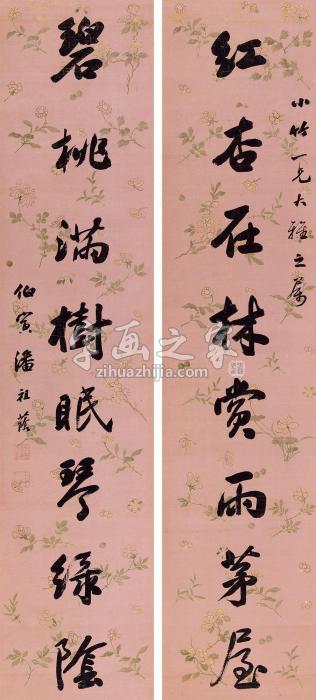 小竹一兄大雅之属
红杏在林赏雨茅屋
碧桃满树眠琴绿阴
伯寅潘祖荫
字画之家
zihuazhijia.com